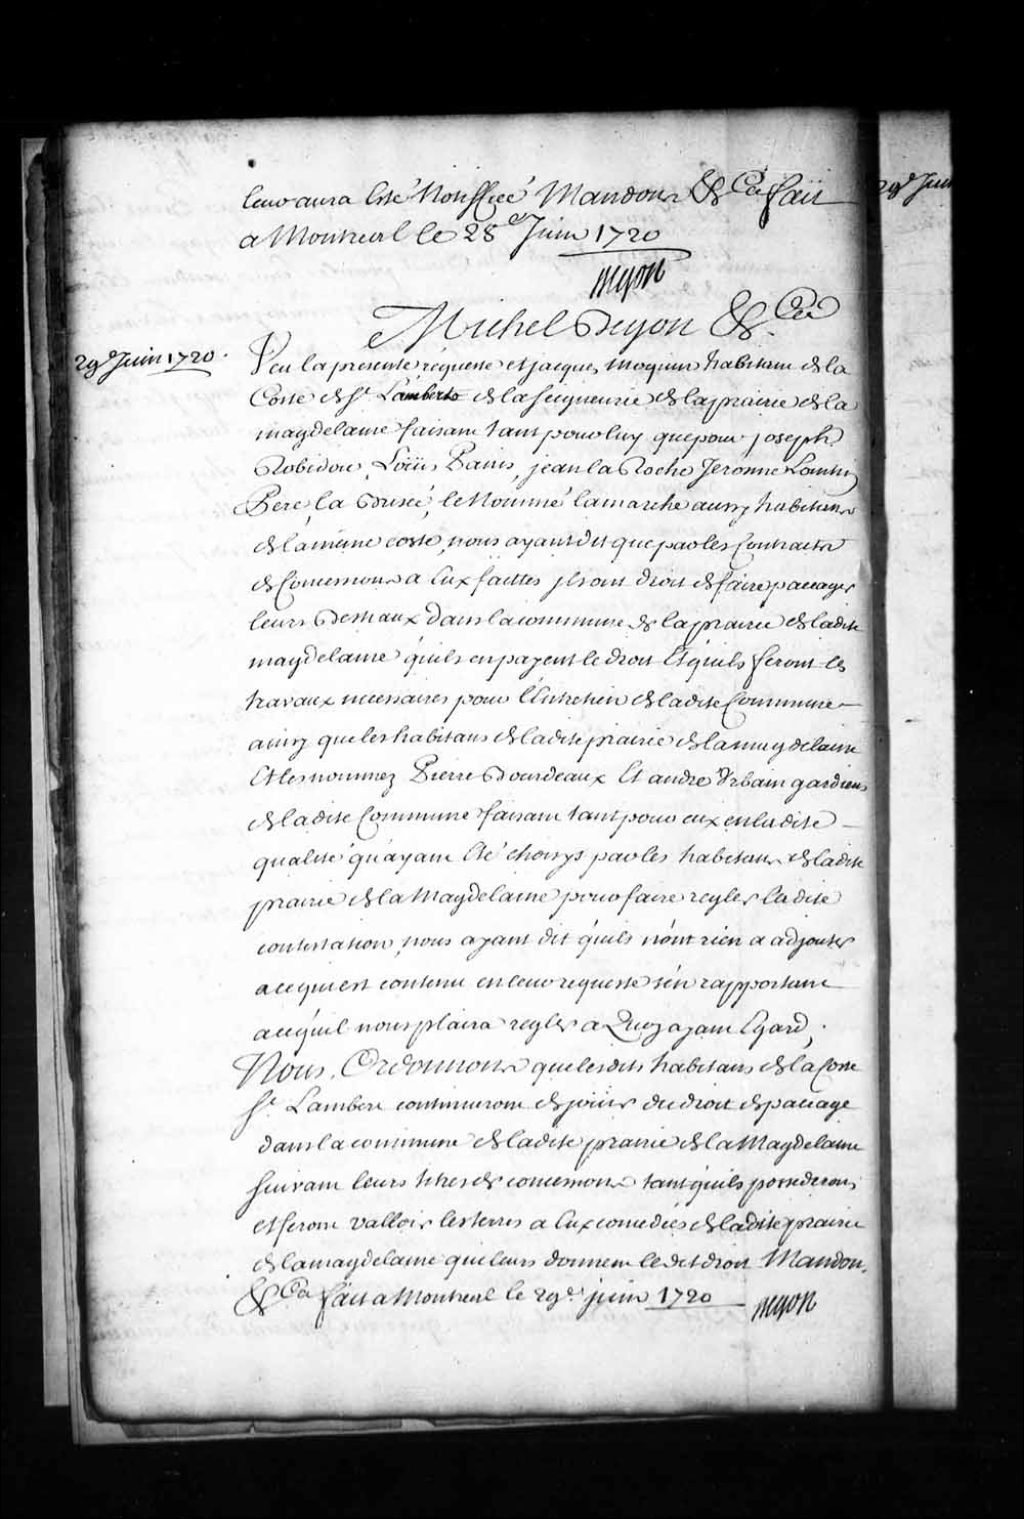 leur aura esté Nottiffiée Mandons &c.a fait
a Montreal le 28.e Juin 1720
Begon
29.e Juin
Michel Begon &c.a
29.e Juin 1720.
Veu la presente requeste et jacques moquin habitant de la
Coste de St. Lambert de la seigneurie de la prairie de la
magdelaine faisant tant pour luy que pour joseph
Robidou, Loüis Paris, jean la Roche Jerosme Lontin
Pere, la Busée, le Nommé lamarche aussy habitans
de la même coste, nous ayant dit que par les Contracts
de Concessions a Eux faittes ils ont droit de faire paccager
leurs Bestiaux dans la commune de la prairie de ladite
magdelaine qu'ils en payent le droit Et qu'ils feront les
travaux necessaires pour l'Entretien de ladite Commune
ainsy que les habitans de ladite prairie de la magdelaine
Et les nommez Pierre Bourdeaux Et andré Urbain gardiens
de ladite Commune faisant tant pour eux en ladite
qualité qu'ayant Eté choisys par les habitans de ladite
prairie de la Magdelaine pour faire regler ladite
contestation, nous ayant dit qu'ils n'ont rien a adjouter
a ce qui est contenu en leur requeste s'en rapportant
a ce qu'il nous plaira regler a Quoy ayant Egard,
Nous, Ordonnons que lesdits habitans de la Coste
St. Lambert continueront de joüir du droit de paccage
dans la commune de ladite prairie de la Magdelaine
suivant leurs titres de concessions tant qu'ils possederont
et feront valloir les terres a Eux concedées de ladite prairie
de la magdelaine qui leurs donnent ledit droit Mandons
&c.a fait a Montreal le 29.e juin 1720 Begon